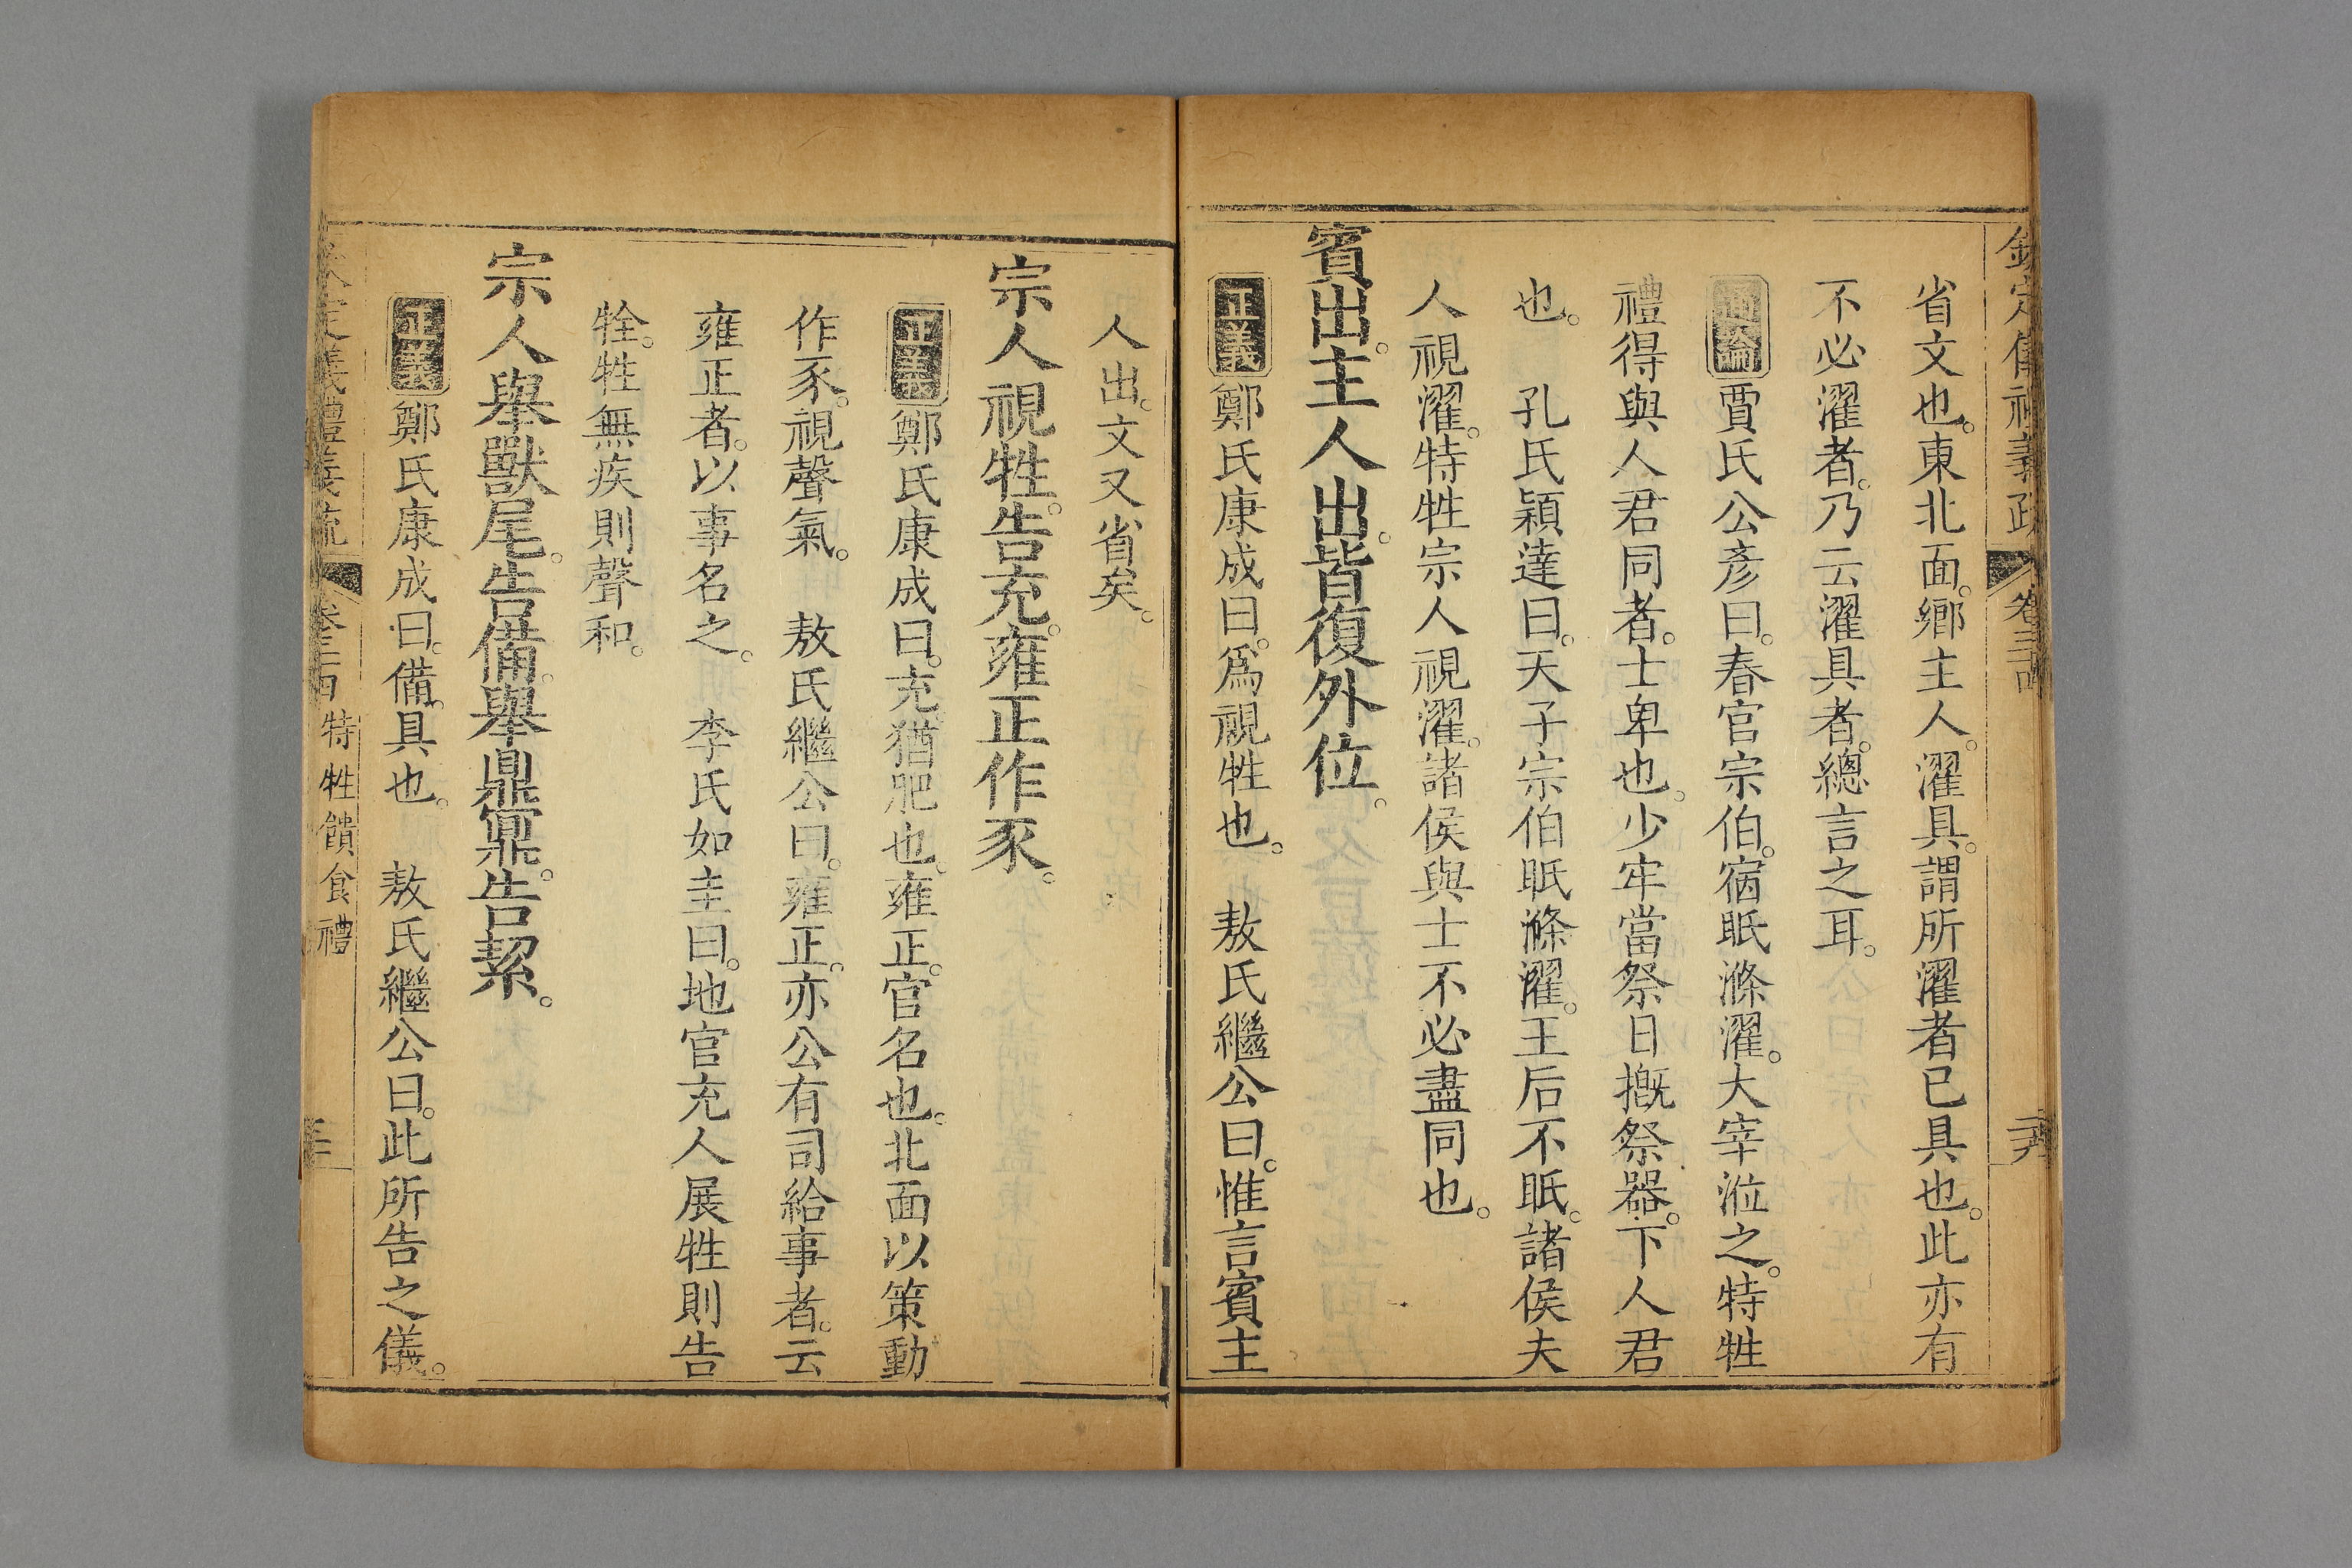 省文也。東北面。鄉主人。濯具。謂所濯者已具也。此亦有
不必濯者。乃云濯具者。總言之耳。
通論賈氏公彥曰。春官宗伯。宿眡滌濯。大宰涖之。特牲
禮得與人君同者。士卑也。少牢當祭日摡祭器。下人君
也。 孔氏穎達曰。天子宗伯眡滌濯。王后不眡。諸侯夫
人視濯。特牲宗人視濯。諸侯與士不必盡同也。
賓出。主人出。皆復外位。
正義鄭氏康成曰。爲視牲也。 敖氏繼公曰。惟言賓主
人出。文又省矣。
宗人視牲。告充。雍正作豕。
正義鄭氏康成曰。充猶肥也。雍正。官名也。北面以策動
作豕。視聲氣。 敖氏繼公曰。雍正。亦公有司給事者。云
雍正者。以事名之。 李氏如圭曰。地官充人展牲則告
牷。牲無疾則聲和。
宗人舉獸尾。告備。舉鼎鼏。告絜。
正義鄭氏康成曰。備。具也。 敖氏繼公曰。此所告之儀。
特牲饋食禮